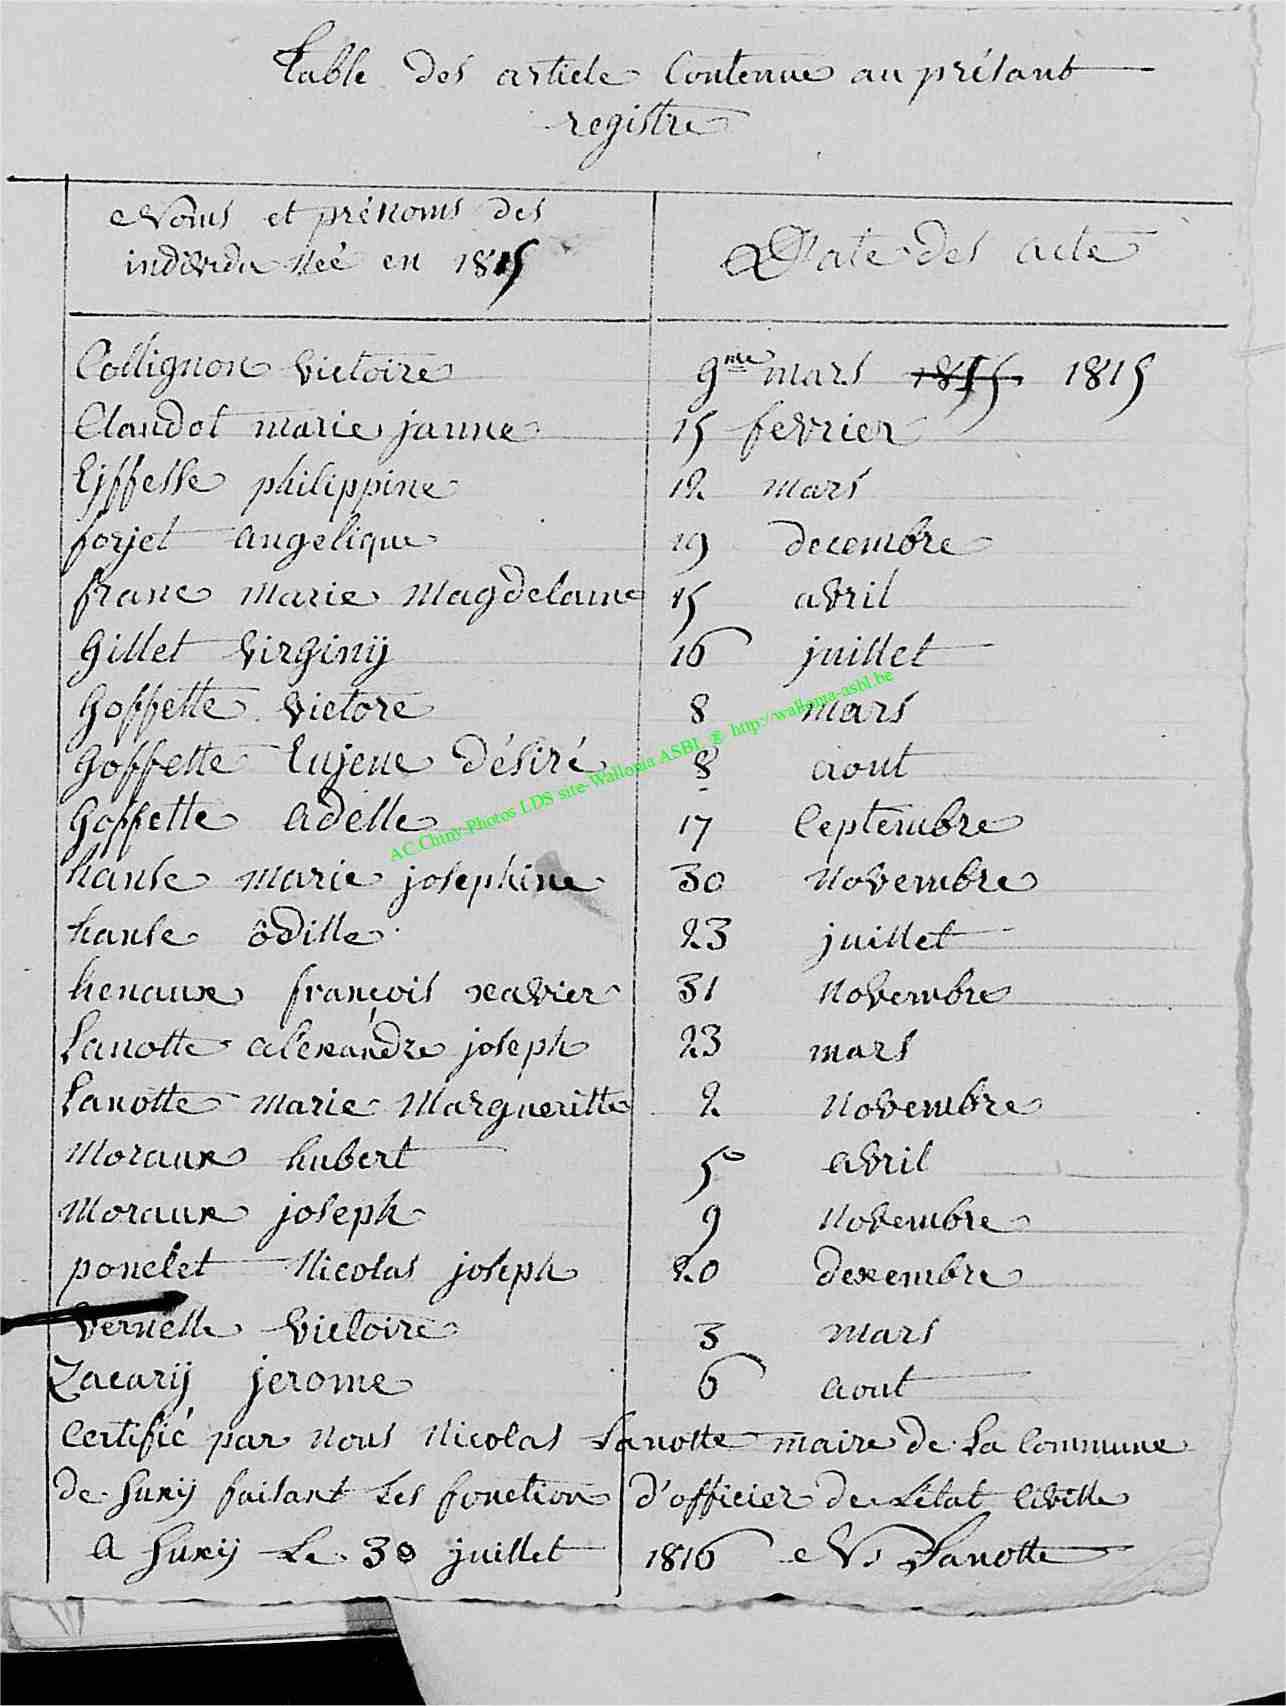 Table des article Contenue au présant
registre
Noms et prénoms des
individu Née en 1815
Date des acte
Collignon victoire 9me mars 1815 1815
Claudot marie janne 15 fevrier
Eyffesse philippine 12 mars
forjet angelique 19 decembre
franc marie Magdelaine 15 avril
Gillet virginy 16 juillet
Goffette victore 8 mars
Goffette Eujene désiré 8 aout
Goffette adelle 17 Ceptembre
hanse marie josephine 30 Novembre
hanse ôdille 23 juillet
henaux françois xavier 31 Novembre
Lanotte alexandre joseph 23 mars
Lanotte marie Margueritte 2 Novembre
Moraux hubert 5 avril
Moraux joseph 9 Novembre
poncelet Nicolas joseph 20 dexembre
Vernelle Victoire 3 mars
Zacary jerome 6 aout
Certifié par Nous Nicolas Lanotte maire de La Commune
de Suxy faisant Les fonction d'officier de L'état Civille
a Suxy Le 30 juillet 1816 N. Lanotte
AC.Chiny-Photos LDS site-Wallonia ASBL @ http://wallonia-asbl.be